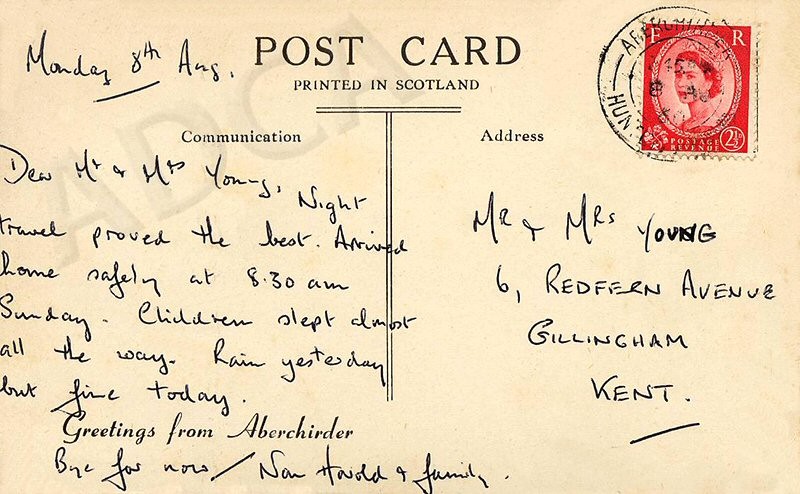 Monday 8th Aug.
POST CARD
PRINTED IN SCOTLAND
Communication
Address
Dear Mr & Mrs Young, Night
travel proved the best. Arrived
home safely at 8.30 am
Sunday. Children slept almost
all the way. Rain yesterday
but fine today.
Greetings from Aberchirder
Bye for now / Nan Harold & family.
MR & MRS YOUNG
6, REDFERN AVENUE
GILLINGHAM
KENT.
F R
POSTAGE
REVENUE
2½
ABERCHIRDER
8 AU
HUNTLY
ADCA